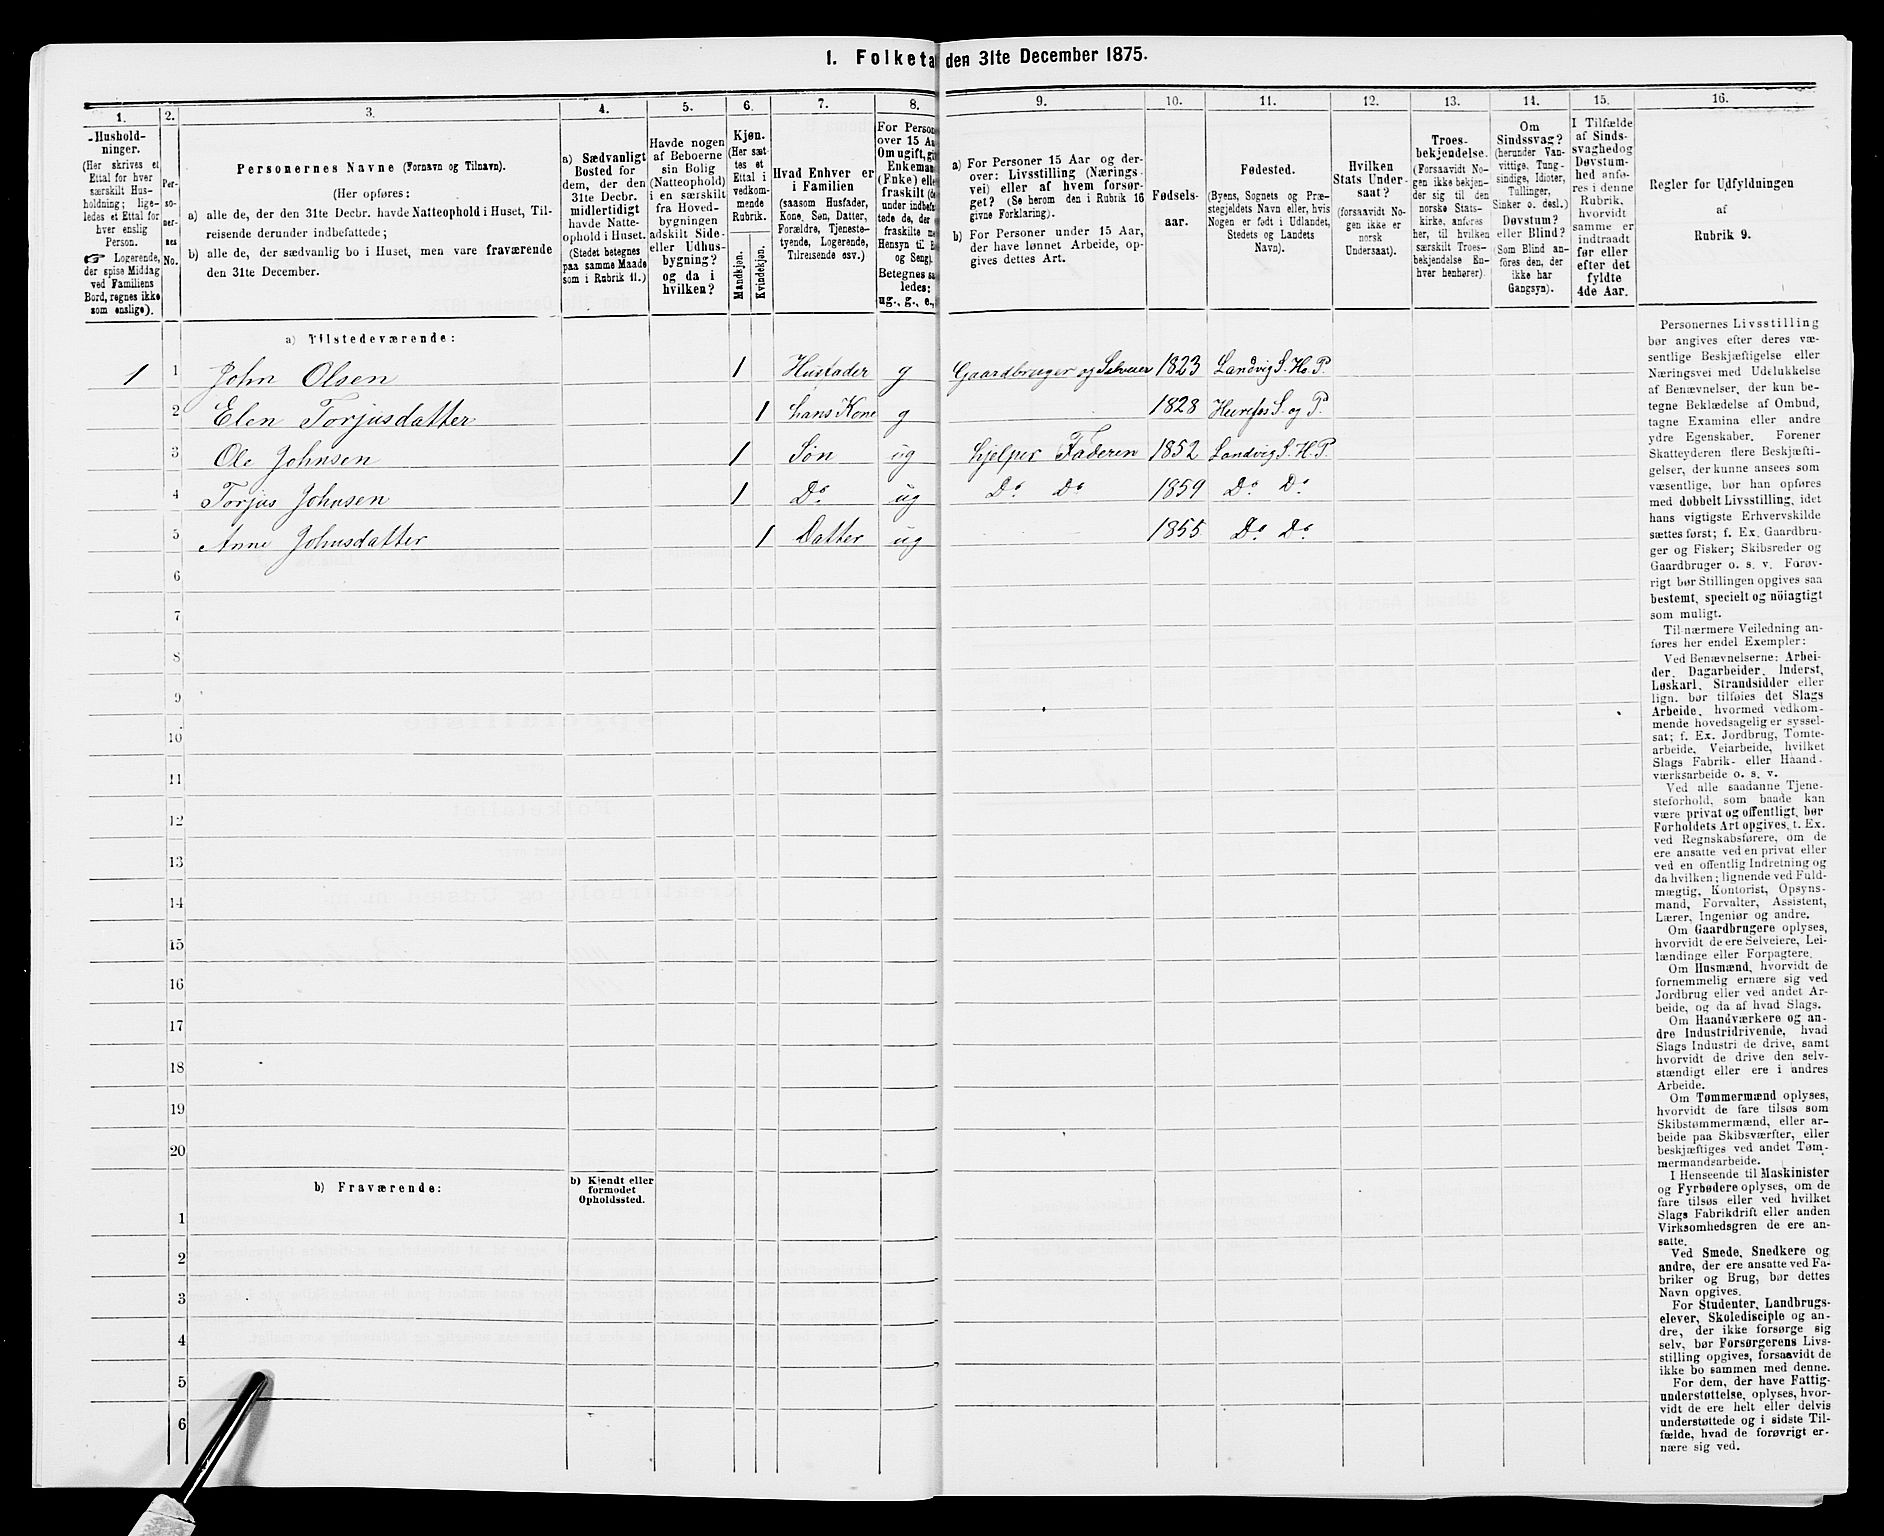 1. Folketa den 31te December 1875.
1. 2. 3. 4. 5. 6. 7. 8. 9. 10. 11. 12. 13. 14. 15. 16.
Hushold-
ninger.
(Her skrives et
Ettal for hver
særskilt Hus-
holdning; lige-
ledes et Ettal for
hver enslig
Person.
☞ Logerende,
der spise Middag
ved Familiens
Bord, regnes ikke
som enslige).
Per-
so-
ner-
nes
No.
Personernes Navne (Fornavn og Tilnavn).
(Her opføres:
a) alle de, der den 31te Decbr. havde Natteophold i Huset, Til-
reisende derunder indbefattede;
b) alle de, der sædvanlig bo i Huset, men vare fraværende
den 31te December.
a) Sædvanligt
Bosted for
dem, der den
31te Decbr.
midlertidigt
havde Natte-
ophold i Huset.
(Stedet betegnes
paa samme Maade
som i Rubrik 11.)
Havde nogen
af Beboerne
sin Bolig
(Natteophold)
i en særskilt
fra Hoved-
bygningen
adskilt Side-
eller Udhus-
bygning?
og da i
hvilken?
Kjøn.
(Her sæt-
tes et
Ettal i
vedkom-
mende
Rubrik.
Mandkjøn.
Kvindekjøn.
Hvad Enhver er
i Familien
(saasom Husfader,
Kone, Søn, Datter,
Forældre, Tjeneste-
tyende, Logerende,
Tilreisende osv.)
For Person
over 15 Aa
Om ugift, gi
Enkeman
(Enke) elle
fraskilt (d
under indbefa
tede de, der
fraskilte
Hensyn til B
og Seng).
Betegnes sa
ledes:
ug., g., e.,
a) For Personer 15 Aar og der-
over: Livsstilling (Nærings-
vei) eller af hvem forsør-
get? (Se herom den i Rubrik 16
givne Forklaring).
b) For Personer under 15 Aar,
der have lønnet Arbeide, op-
gives dettes Art.
Fødsels-
aar.
Fødested.
(Byens, Sognets og Præ-
stegjeldets Navn eller, hvis
Nogen er født i Udlandet,
Stedets og Landets
Navn).
Hvilken
Stats Under-
saat?
(forsaavidt No-
gen ikke er
norsk
Undersaat).
Troes-
bekjendelse.
(Forsaavidt No-
gen ikke bekjen-
der sig til den
norske Stats-
kirke, anføres
her, til hvilken
særskilt Troes-
bekjendelse En-
hver henhører).
Om
Sindssvag?
(herunder Van-
vittige, Tung-
sindige, Idioter,
Tullinger,
Sinker o. desl.)
Døvstum?
eller Blind?
(Som Blind an-
føres den, der
ikke har
Gangsyn).
I Tilfælde
af Sinds-
svaghed og
Døvstum-
hed anfø-
res i denne
Rubrik,
hvorvidt
samme er
indtraadt
før eller
efter det
fyldte
4de Aar.
Regler for Udfyldningen
af
Rubrik 9.
a) Tilstedeværende:
1 1 John Olsen 1 Husfader g Gaardbruger og Selveier 1823 Landvig S. H. P.
2 Elen Torjusdatter 1 hans Kone g 1828 S. og P.
3 Ole Johnsen 1 Søn ug hjelper Faderen 1852 Landvig S. H. P.
4 Torjus Johnsen 1 Do. ug Do. Do 1859 Do Do.
5 Anne Johnsdatter 1 Datter ug 1855 Do. Do
6
7
8
9
10
11
12
13
14
15
16
17
18
19
20
b) Fraværende:
b) Kjendt eller
formodet
Opholdssted.
1
2
3
4
5
6
Personernes Livsstilling
bør angives efter deres væ-
sentlige Beskjæftigelse eller
Næringsvei med Udelukkelse
af Benævnelser, der kun be-
tegne Beklædelse af Ombud,
tagne Examina eller andre
ydre Egenskaber. Forener
Skatteyderen flere Beskjæfti-
gelser, der kunne ansees som
væsentlige, bør han opføres
med dobbelt Livsstilling, idet
hans vigtigste Erhvervskilde
sættes først; f. Ex. Gaardbru-
ger og Fisker; Skibsreder og
Gaardbruger o. s. v. Forøv-
rigt bør Stillingen opgives saa
bestemt, specielt og nöiagtigt
som muligt.
Til nærmere Veiledning an-
føres her endel Exempler:
Ved Benævnelserne: Arbei-
der, Dagarbeider, Inderst,
Løskarl, Strandsidder eller
lign. bør tilføies det Slags
Arbeide, hvormed vedkom-
mende hovedsagelig er syssel-
sat; f. Ex. Jordbrug, Tomte-
arbeide, Veiarbeide, hvilket
Slags Fabrik- eller Haand-
værksarbeide o. s. v.
Ved alle saadanne Tjene-
steforhold, som baade kan
være privat og offentligt, bør
Forholdets Art opgives, t. Ex.
ved Regnskabsførere, om de
ere ansatte ved en privat eller
ved en offentlig Indretning og
da hvilken; lignende ved Fuld-
mægtig, Kontorist, Opsyns-
mand, Forvalter, Assistent,
Lærer, Ingeniør og andre.
Om Gaardbrugere oplyses,
hvorvidt de ere Selveiere, Lei-
lændinge eller Forpagtere.
Om Husmænd, hvorvidt de
fornemmelig ernære sig ved
Jordbrug eller ved andet Ar-
beide, og da af hvad Slags.
Om Haandværkere og an-
dre Industridrivende, hvad
Slags Industri de drive, samt
hvorvidt de drive den selv-
stændigt eller ere i andres
Arbeide.
Om Tømmermænd oplyses,
hvorvidt de fare tilsøs som
Skibstømmermænd, eller ar-
beide paa Skibsværfter, eller
beskjæftiges ved andet Tøm-
mermandsarbeide.
I Henseende til Maskinister
og Fyrbødere oplyses, om de
fare tilsøs eller ved hvilket
Slags Fabrikdrift eller anden
Virksomhedsgren de ere an-
satte.
Ved Smede, Snedkere og
andre, der ere ansatte ved Fa-
briker og Brug, bør dettes
Navn opgives.
For Studenter, Landbrugs-
elever, Skoledisciple og an-
dre, der ikke forsørge sig
selv, bør Forsørgerens Livs-
stilling opgives, forsaavidt de
ikke bo sammen med denne.
For dem, der have Fattig-
understøttelse, oplyses, hvor-
vidt de ere helt eller delvis
understøttede og i sidste Til-
fælde, hvad de forøvrigt er-
nære sig ved.